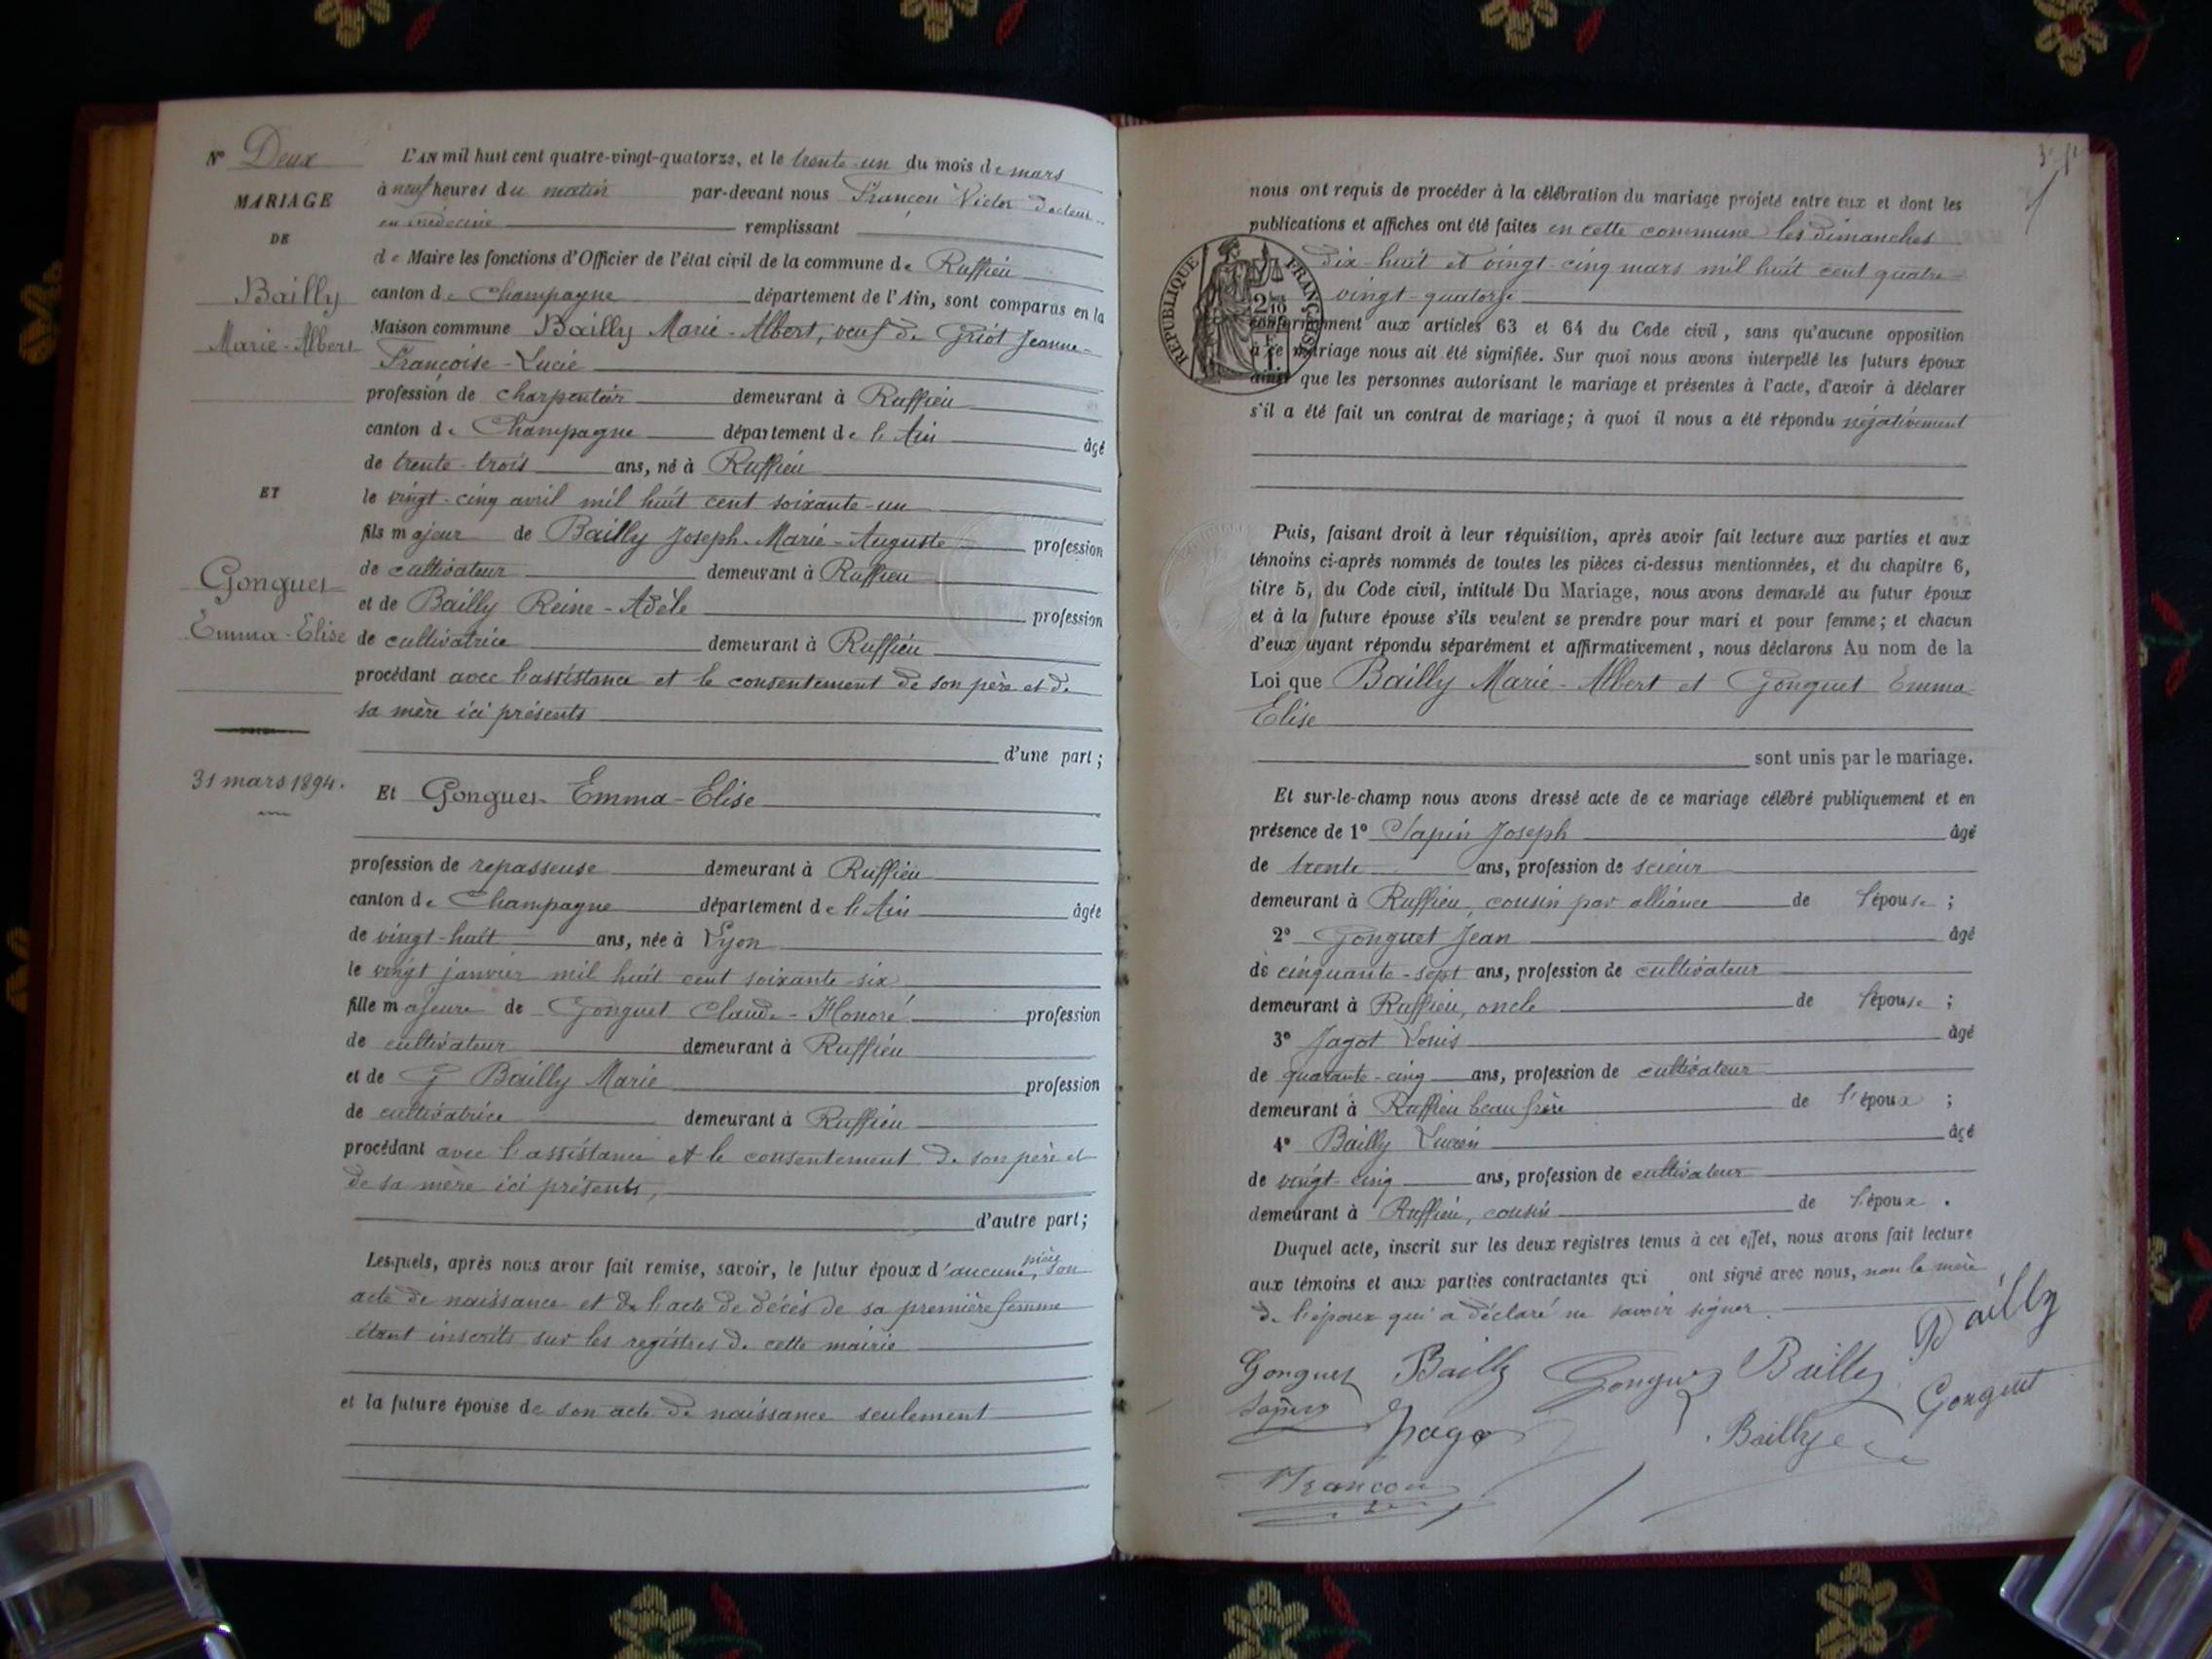 N° Deux
MARIAGE
DE
Bailly
Marie-Albert
ET
Gonguet
Emma-Elise
31 mars 1894.
L'AN mil huit cent quatre-vingt-quatorze, et le trente-un du mois de mars
à neuf heures du matin par-devant nous Françon Victor docteur
en médecine remplissant
de Maire les fonctions d'Officier de l'état civil de la commune de Ruffieu
canton de Champagne département de l'Ain, sont comparus en la
Maison commune Bailly Marie-Albert, veuf de Griot Jeanne-
Françoise-Lucie
profession de charpentier demeurant à Ruffieu
canton de Champagne département de l'Ain âgé
de trente-trois ans, né à Ruffieu
le vingt-cinq avril mil huit cent soixante-un
fils majeur de Bailly Joseph-Marie-Auguste profession
de cultivateur demeurant à Ruffieu
et de Bailly Reine-Adèle profession
de cultivatrice demeurant à Ruffieu
procédant avec l'assistance et le consentement de son père et de
sa mère ici présents
d'une part;
Et Gonguet Emma-Elise
profession de repasseuse demeurant à Ruffieu
canton de Champagne département de l'Ain âgée
de vingt-huit ans, née à Lyon
le vingt janvier mil huit cent soixante-six
fille majeure de Gonguet Claude-Honoré profession
de cultivateur demeurant à Ruffieu
et de G Bailly Marie profession
de cultivatrice demeurant à Ruffieu
procédant avec l'assistance et le consentement de son père et
de sa mère ici présents,
d'autre part;
Lesquels, après nous avoir fait remise, savoir, le futur époux d'aucune pièce, son
acte de naissance et de l'acte de décès de sa première femme
étant inscrits sur les registres de cette mairie
et la future épouse de son acte de naissance seulement
nous ont requis de procéder à la célébration du mariage projeté entre eux et dont les
publications et affiches ont été faites en cette commune les dimanches
dix-huit et vingt-cinq mars mil huit cent quatre-
vingt-quatorze
REPUBLIQUE FRANÇAISE
conformément aux articles 63 et 64 du Code civil, sans qu'aucune opposition
à ce mariage nous ait été signifiée. Sur quoi nous avons interpellé les futurs époux
ainsi que les personnes autorisant le mariage et présentes à l'acte, d'avoir à déclarer
s'il a été fait un contrat de mariage; à quoi il nous a été répondu négativement
Puis, faisant droit à leur réquisition, après avoir fait lecture aux parties et aux
témoins ci-après nommés de toutes les pièces ci-dessus mentionnées, et du chapitre 6,
titre 5, du Code civil, intitulé Du Mariage, nous avons demandé au futur époux
et à la future épouse s'ils veulent se prendre pour mari et pour femme; et chacun
d'eux ayant répondu séparément et affirmativement, nous déclarons Au nom de la
Loi que Bailly Marie-Albert et Gonguet Emma-
Elise
sont unis par le mariage.
Et sur-le-champ nous avons dressé acte de ce mariage célébré publiquement et en
présence de 1° Sapin Joseph âgé
de trente ans, profession de scieur
demeurant à Ruffieu, cousin par alliance de l'épouse;
2° Gonguet Jean âgé
de cinquante-sept ans, profession de cultivateur
demeurant à Ruffieu, oncle de l'épouse;
3° Jagot Louis âgé
de quarante-cinq ans, profession de cultivateur
demeurant à Ruffieu beau frère de l'époux;
4° Bailly Lucien âgé
de vingt-cinq ans, profession de cultivateur
demeurant à Ruffieu, cousin de l'époux.
Duquel acte, inscrit sur les deux registres tenus à cet effet, nous avons fait lecture
aux témoins et aux parties contractantes qui ont signé avec nous, non la mère
de l'époux qui a déclaré ne savoir signer.
Bailly
Gonguet Bailly Gonguet Bailly
Gonguet
Sapin Jagot Bailly
Françon